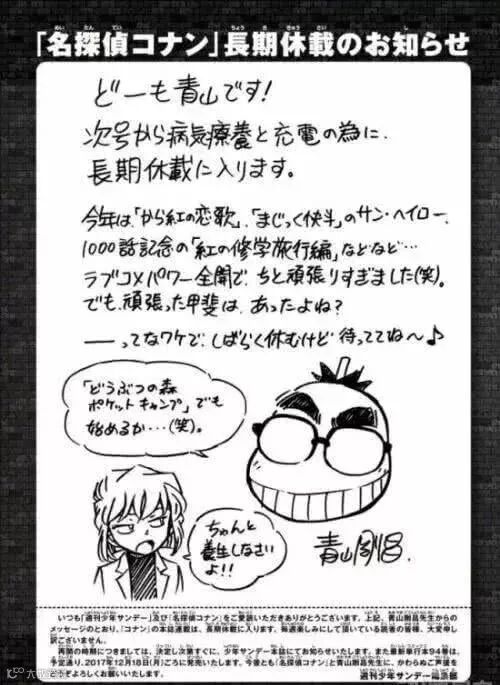 「名探偵コナン」長期休載のお知らせ
どーも青山です!
次号から病気療養と充電の為に、
長期休載に入ります。
今年は「から紅の恋歌」、「まじっく快斗」のサン・ヘイロー、
1000話記念の「紅の修学旅行編」などなど…
ラブコメパワー全開で、ちと頑張りすぎました(笑)。
でも、頑張った甲斐は、あったよね?
――ってなワケで、しばらく休むけど待っててね〜♪
「どうぶつの森
ポケットキャンプ」でも
始めるか…(笑)。
ちゃんと
養生しなさい
よ!!
青山剛昌
いつも「週刊少年サンデー」及び「名探偵コナン」をご愛読いただきありがとうございます。上記、青山剛昌先生からの
メッセージのとおり、「コナン」の本誌連載は、長期休載に入ります。毎週楽しみにして頂いている読者の皆様、大変申し
訳ございません。
再開の時期につきましては、決定し次第すぐに、少年サンデー本誌にてお知らせいたします。また最新単行本94巻は、
予定通り、2017年12月18日(月)ごろに発売いたします。今後とも「名探偵コナン」と青山剛昌先生に、かわらぬご声援を
週刊少年サンデー編集部